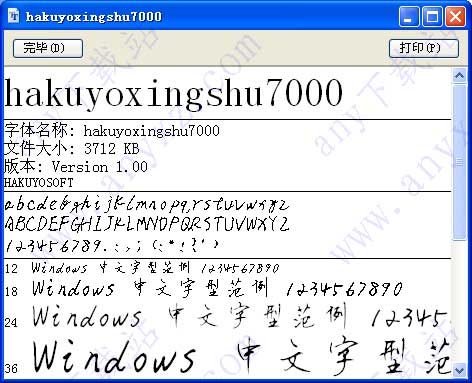 hakuyoxingshu7000
完毕(D)
打印(P)
hakuyoxingshu7000
字体名称: hakuyoxingshu7000
文件大小: 3712 KB
版本: Version 1.00
HAKUYOSOFT
abcdefghijklmnopqrstuvwxyz
ABCDEFGHIJKLMNOPQRSTUVWXYZ
1234567890.:,; (:*!?')
12 Windows 中文字型范例 1234567890
18 Windows 中文字型范例 1234567890
24 Windows 中文字型范例 12345
36 Windows 中文字型范
any下载站